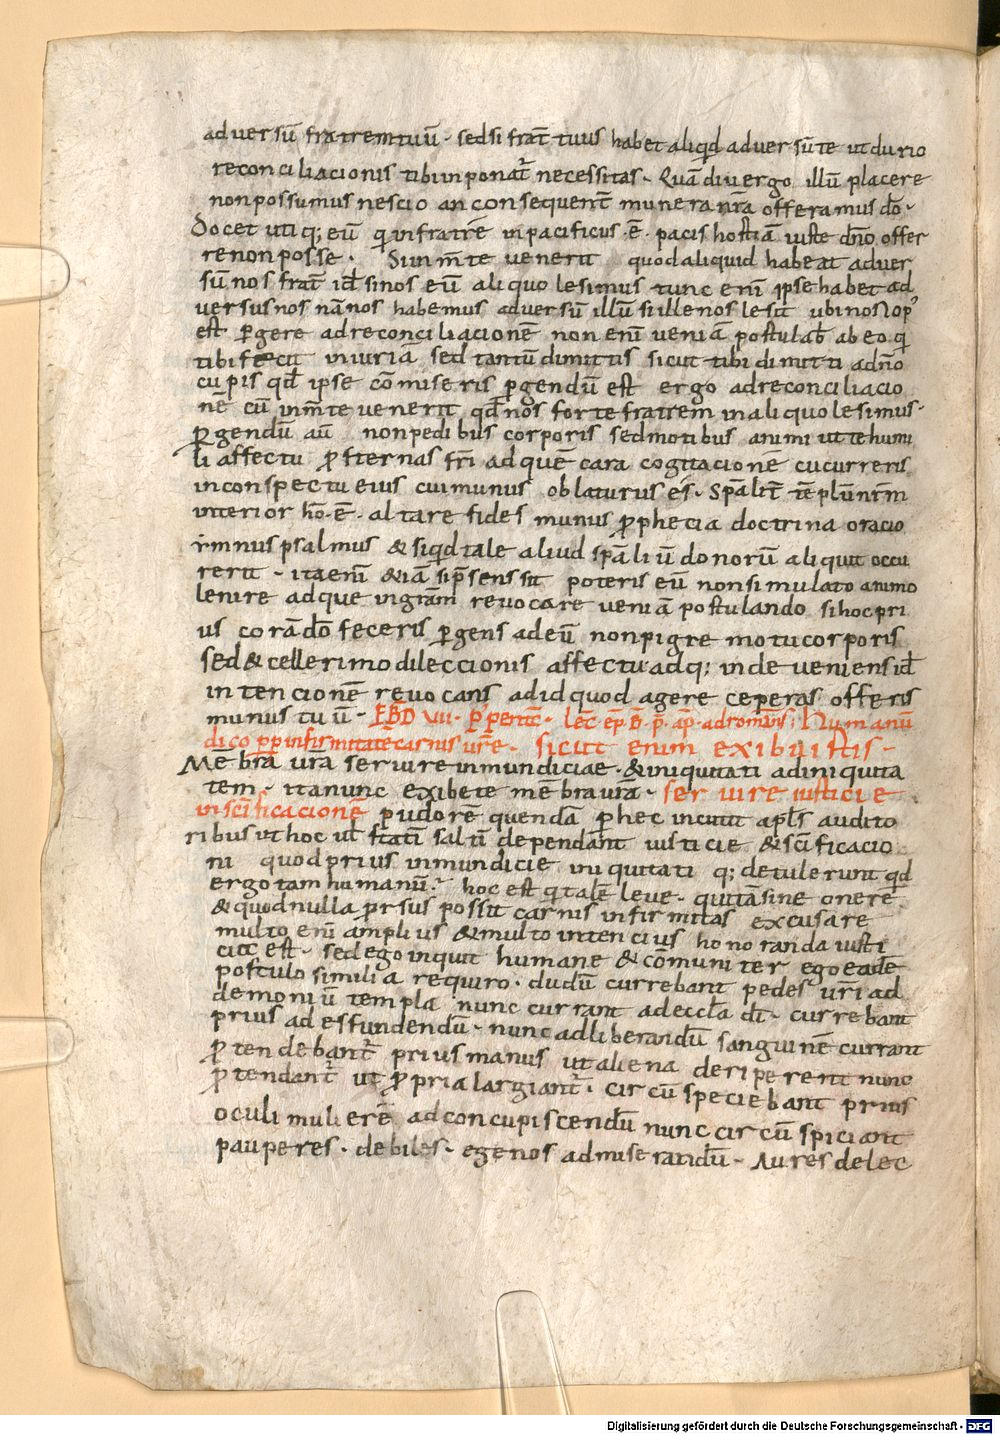 aduersū fratremtuū · sedsi frat̄ tuus habet aliqid aduersūte utdurio
reconciliacionis tibi inponat̄ necessitas · Quādiu ergo illū placere
nonpossumus nescio anconsequent̄ munera nr̄a offeramus dō ·
Docet utiq; eū qi infratrē inpacificus · ē · pacis hostiā iuste dn̄o offer
renonposse · Siinm̄te uenerit quodaliquid habeat aduer
sū nos frat̄ id ē sinos eū aliquo lesimus tunc enī ipse habet ad
uersusnos nānos habemus aduersū illū siillenos lesit ubinos
est p̄gere adreconciliacionē non enī ueniā postulab ab eo q
tibi fecit iniuriā sed tantū dimittis sicut tibi dimitti adn̄o
cupis qd̄ ipse cōmiseris p̄gendū est ergo adreconciliacio
nē cū inm̄te uenerit qd̄ nos forte fratrem inaliquo lesimus ·
p̄gendū aū nonpedibus corporis sedmotibus animi ut tehumi
li affectu p̄sternas fr̄i adquē cara cogitacionē cucurreris
inconspectu eius cuimunus oblaturus es · Sp̄alit̄ tēplū nr̄m
interior hō · ē · altare fides munus p̄phecia doctrina oracio
imnus psalmus & siqid tale aliud sp̄aliū donorū aliquit occu
rerit · itaenī &iā sip̄sens sit poteris eū nonsimulato animo
lenire adque ingrām reuocare ueniā postulando sihocpri
us corā dō feceris p̄gens adeū nonpigre motu corporis
sed & cellerimo dileccionis affectu adq; inde ueniens id ē
intencionē reuocans adid quod agere ceperas offeris
munus tuū · EBD VII · p̄ pent̄ · lec ep̄ b̄ p̄ ap̄ · adromanos ; Humanū
dico pp̄ infirmitatē carnis ur̄e · sicut enim exibuistis ·
Mēbra ur̄a seruire inmundiciae · &iniquitati adiniquita
tem · itanunc exibete mēbra ura · seruire iusticie
insc̄ificacionē pudorē quendā p̄ hec incutit apls̄ audito
ribus ut hoc ul̄ statī saltū dependant iusticie & sc̄ificacio
ni quod prius inmundicie iniquitati q; detulerunt qd
ergo tam humanū? hoc est q talē leue · quitā sine onere
& quod nulla p̄rsus possit carnis infirmitas excusare
multo enī amplius & multo intencius honoranda iusti
cia est · sed ego inquit humane & cōmuniter ego eadē
postulo similia requiro · dudū currebant pedes ur̄i ad
demoniū templa nunc currant ad eccla dī · currebant
prius ad esfundendū · nunc adliberandū sanguinē currant
p̄tendebant̄ prius manus ut aliena deriperent nunc
p̄tendant̄ ut p̄pria largiant̄ · circūspeciebant prius
oculi mulierē adconcupiscendū nunc circūspiciant
pauperes · debiles · egenos admiserandū · Aures delec
Digitalisierung gefördert durch die Deutsche Forschungsgemeinschaft - DFG